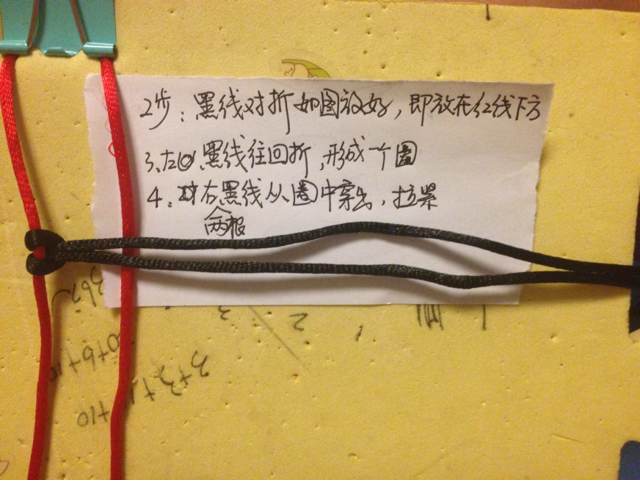 2步：黑线对折如图放好，即放在红线下方
3、左 黑线往回折，形成一个圈
4、 右黑线从圈中穿出，拉紧
两根
363
0+6+10
3+3+1+10